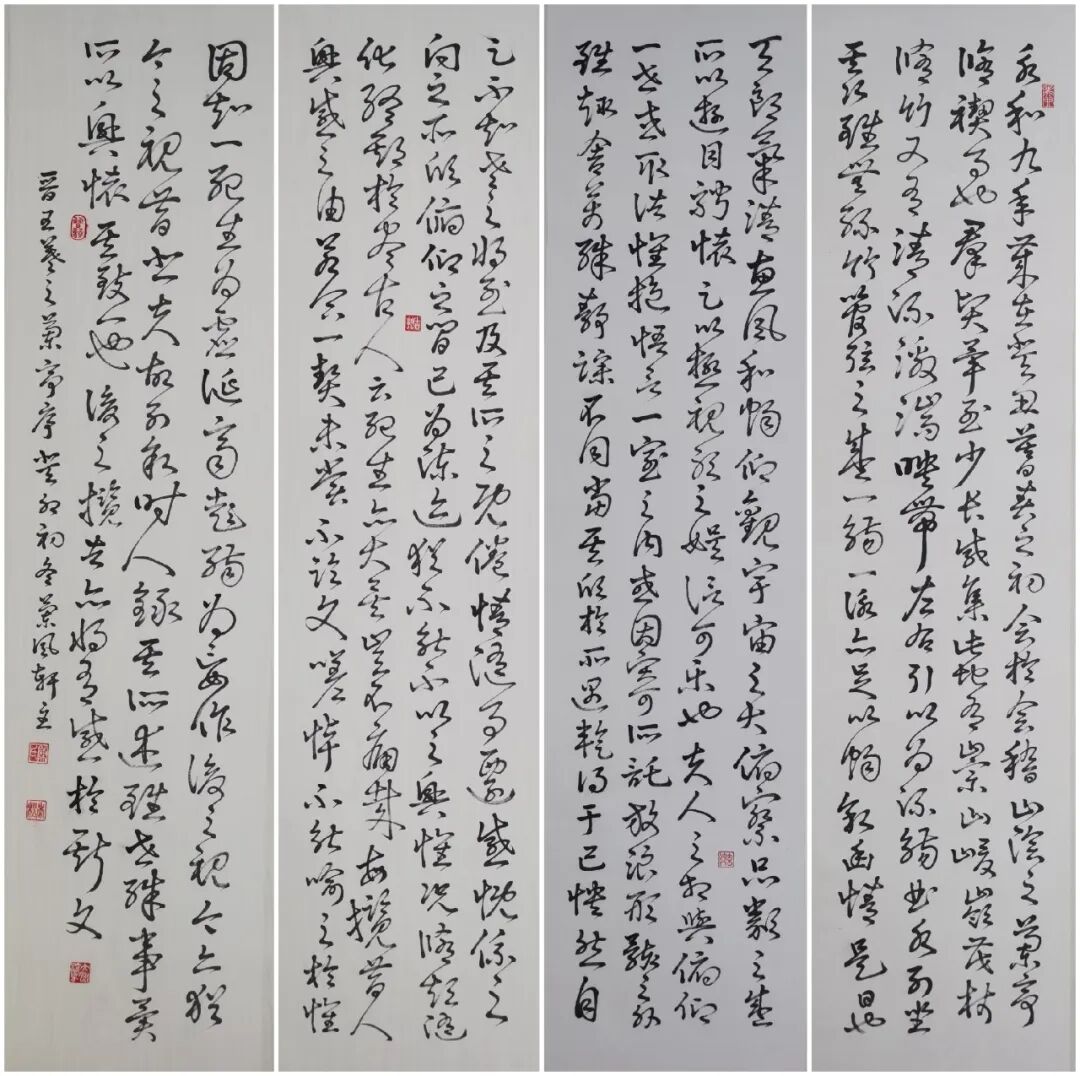 永和九年歲在癸丑暮春之初會於會稽山陰之蘭亭
脩禊事也羣賢畢至少長咸集此地有崇山峻嶺茂林
脩竹又有清流激湍映帶左右引以為流觴曲水列坐
其次雖無絲竹管弦之盛一觴一詠亦足以暢敘幽情是日也
天朗氣清惠風和暢仰觀宇宙之大俯察品類之盛
所以遊目騁懷足以極視聽之娛信可樂也夫人之相與俯仰
一世或取諸懷抱悟言一室之內或因寄所託放浪形骸之外
雖趣舍萬殊靜躁不同當其欣於所遇暫得于己快然自
足不知老之將至及其所之既倦情隨事遷感慨係之
向之所欣俯仰之間已為陳迹猶不能不以之興懷況脩短隨
化終期於盡古人云死生亦大矣豈不痛哉每攬昔人
興感之由若合一契未嘗不臨文嗟悼不能喻之於懷
固知一死生為虛誕齊彭殤為妄作後之視今亦猶
今之視昔悲夫故列敘時人錄其所述雖世殊事異
所以興懷其致一也後之攬者亦將有感於斯文
晉王羲之蘭亭序癸卯初冬蘭風軒主